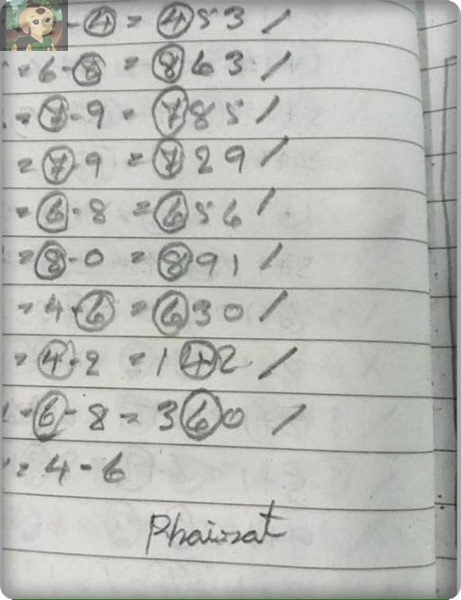 - 4 = 453 /
= 6 - 8 = 863 /
= 7 - 9 = 785 /
= 7 - 9 = 729 /
= 6 - 8 = 656 /
= 8 - 0 = 891 /
= 4 - 6 = 630 /
= 4 - 2 = 142 /
= 6 - 8 = 360 /
= 4 - 6